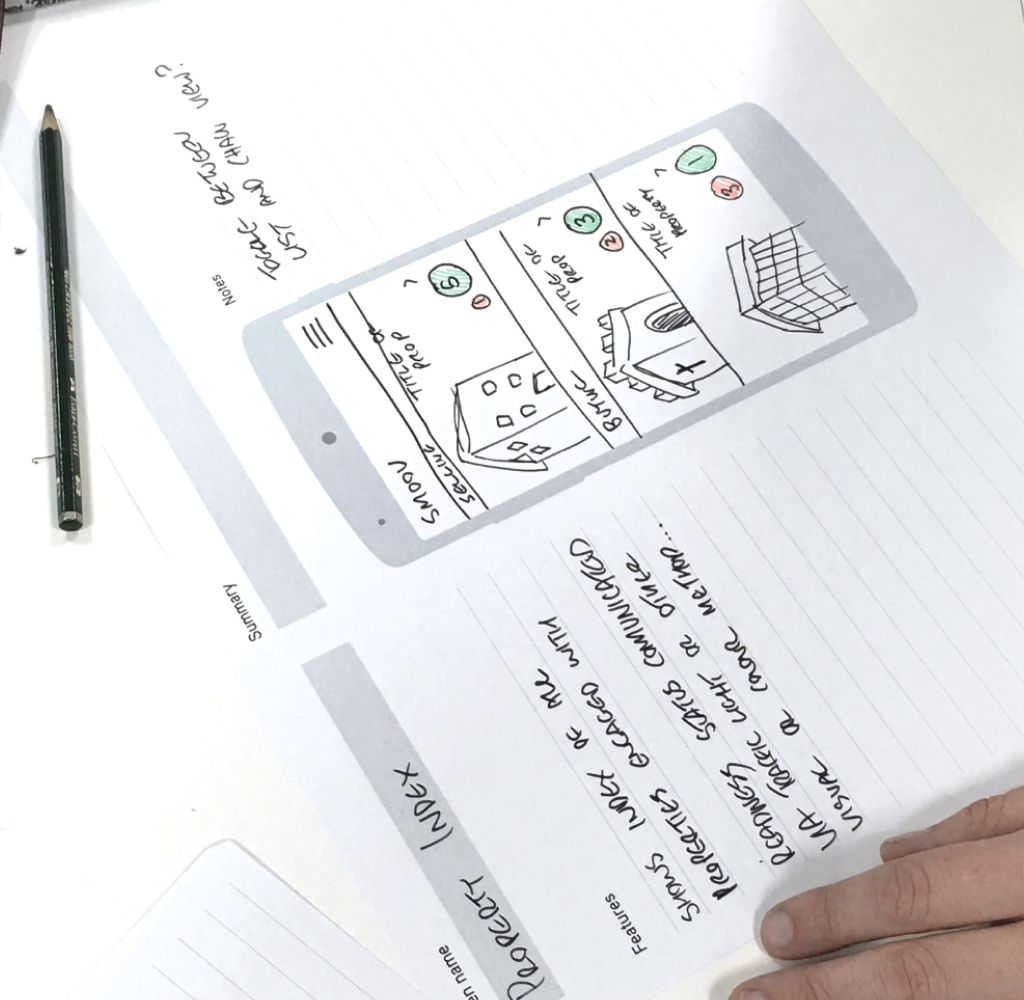 en name
PROPERTY INDEX
Summary
Features
SHOWS INDEX OF ALL
PROPERTIES ENGAGED WITH
READINESS STATUS COMMUNICATED
VIA TRAFFIC LIGHT OR OTHER
VISUAL OR COLOUR METHOD...
SMOOV
SELLING
TITLE OF
PROP
>
5
1
BUYING
TITLE OF
PROP
>
3
2
TITLE OF
PROPERTY
>
1
3
Notes
TOGGLE BETWEEN
LIST AND CHAIN VIEW?